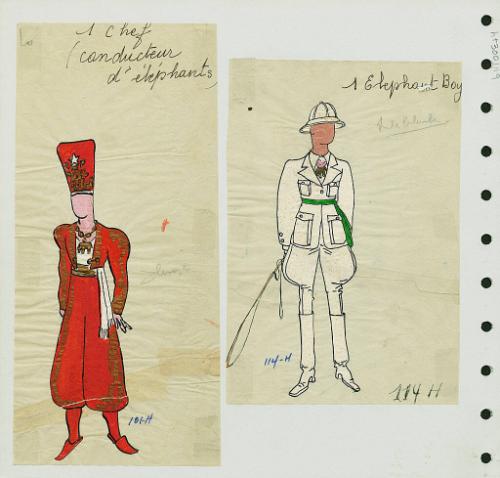 1 Chef
(conducteur
d'éléphants)
101-H
1 Elephant Boy
114-H
114 H